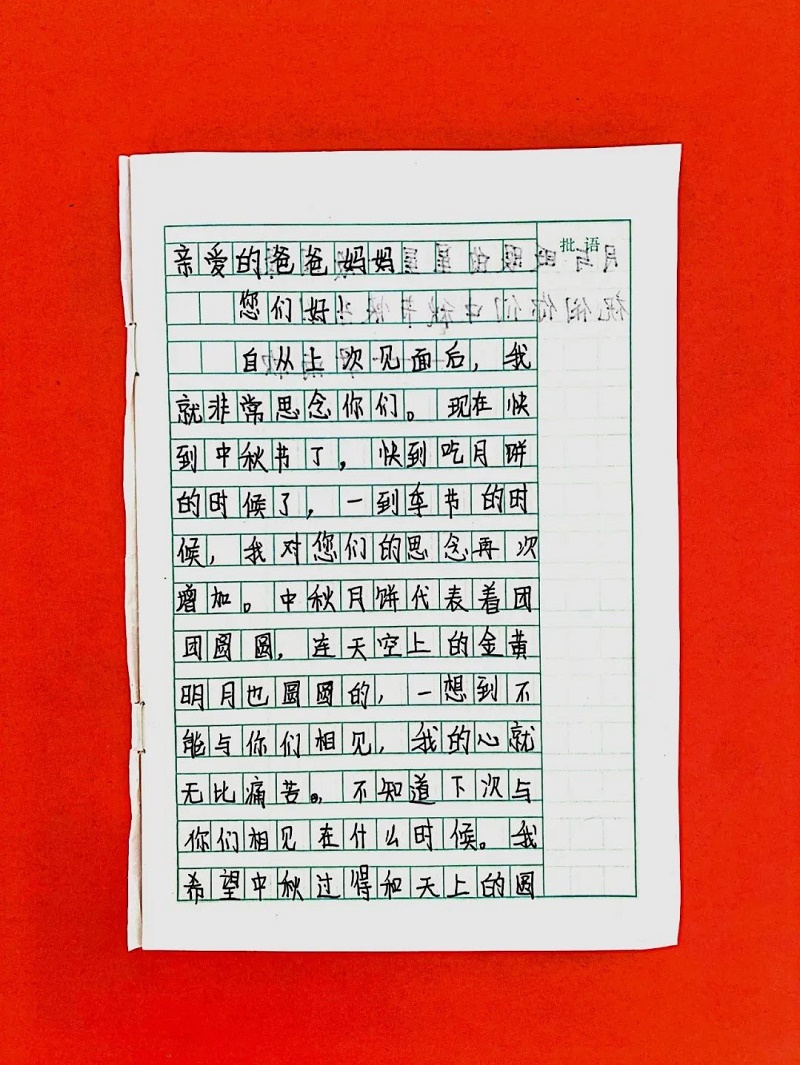 批语
亲爱的爸爸妈妈
您们好！
自从上次见面后，我
就非常思念你们。现在快
到中秋节了，快到吃月饼
的时候了，一到车节的时
候，我对您们的思念再次
增加。中秋月饼代表着团
团圆圆，连天空上的金黄
明月也圆圆的，一想到不
能与你们相见，我的心就
无比痛苦。不知道下次与
你们相见在什么时候。我
希望中秋过得和天上的圆